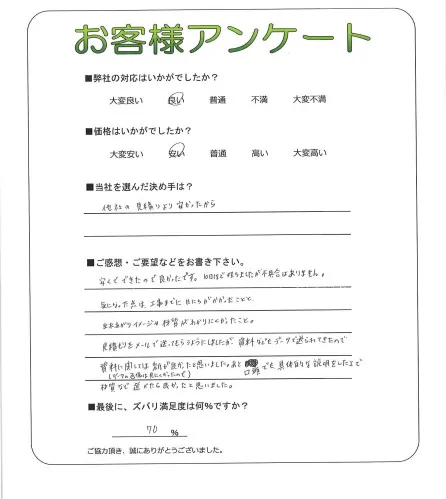 お客様アンケート
■弊社の対応はいかがでしたか?
大変良い 良い 普通 不満 大変不満
■価格はいかがでしたか?
大変安い 安い 普通 高い 大変高い
■当社を選んだ決め手は?
他社の見積りより安かったから
■ご感想・ご要望などをお書き下さい。
安くできたので良かったです。10日ほど経ちましたが不具合はありません。
気になった点は、工事までに日にちがかかったことと
出来上がりイメージや材質がわかりにくかったこと。
見積もりをメールで送ってもらうようにしましたが、資料などもデータで送られてきたので
資料に関しては 紙が良かったと思いました。あと 口頭でも具体的な説明をした上で
(データの画像は見にくかったので)
材質など選べたら良かったと思いました。
■最後に、ズバリ満足度は何%ですか?
70 %
ご協力頂き、誠にありがとうございました。